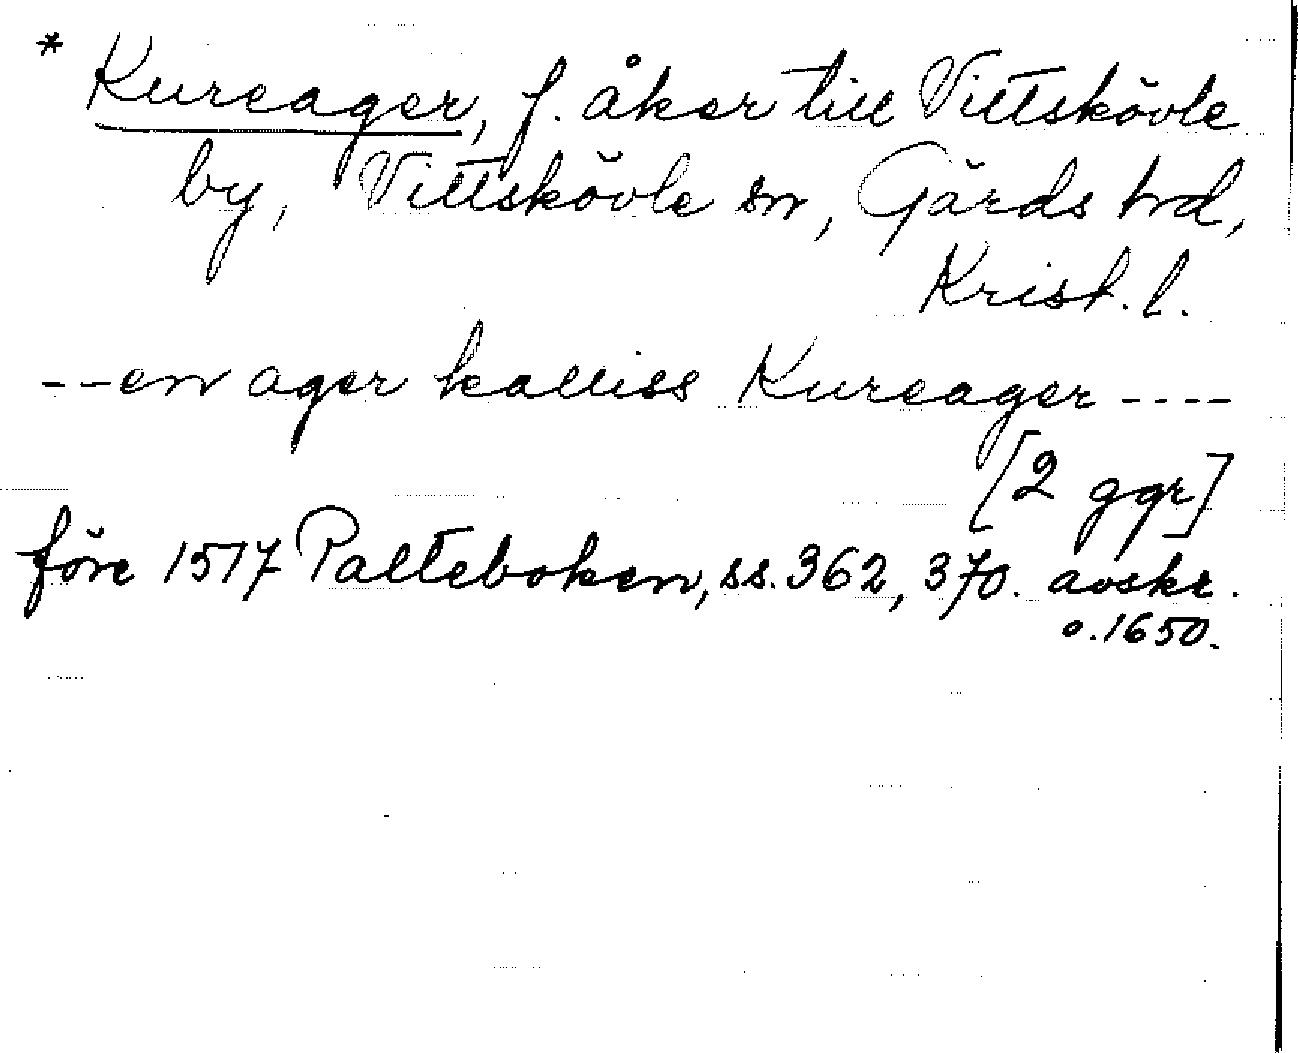 * Kureager, f. åker till Vittskövle
by, Vittskövle sn, Gärds hd,
Krist. l.
--en ager kalliss Kureager ----
[2 ggr]
före 1517 Palteboken, ss. 362, 370. avskr.
o. 1650.